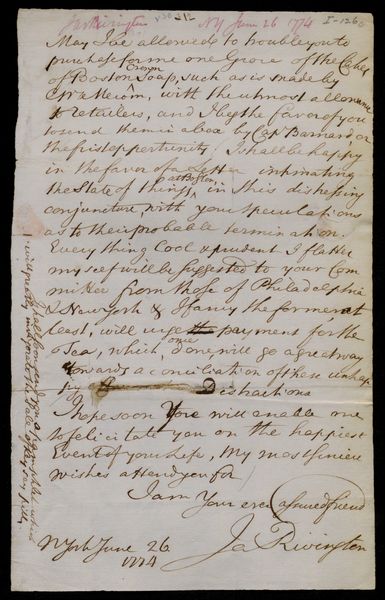 Jas Rivington NY June 26 1774 I-126
May I be allowed to trouble you to
purchase for me one Groce of the Cakes
of Boston Crown Soap, such as is made by
Mecom, with the utmost allowance
to retailers, and I beg the favor of you
to send them in a box by Capt Barnard or
the first opportunity. I shall be happy
in the favor of a letter intimating
the State of things at Boston in this distressing
conjuncture, with your Speculations
as to their probable termination.
Every thing Cool & prudent I flatter
myself will be Suggested to your Com
mittee from those of Philadelphia
& New York & I fancy the former at
least, will urge payment for the
Tea, which, once done will go a great way
towards a conciliation of these unhap
py Distractions
I hope soon you will enable me
to felicitate you on the happiest
Event of your life, My most sincere
wishes attend you for
I am Your ever assured friend
Ja Rivington
NYork June 26
1774